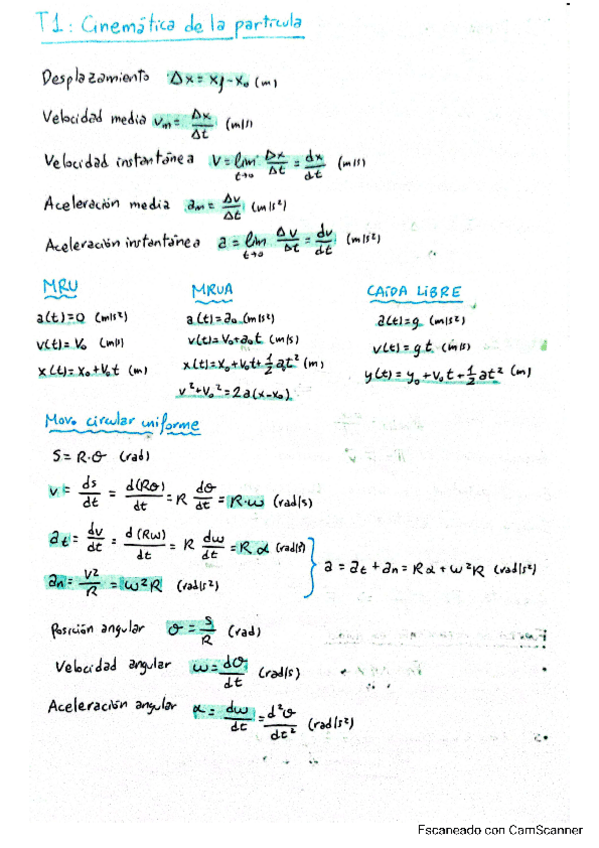 T1: Cinemática de la partícula
Desplazamiento Δx = xf - x₀ (m)
Velocidad media vm = Δx/Δt (m/s)
Velocidad instantánea V = lim t→0 Δx/Δt = dx/dt (m/s)
Aceleración media am = Δv/Δt (m/s²)
Aceleración instantánea a = lim t→0 Δv/Δt = dv/dt (m/s²)
MRU
a(t) = 0 (m/s²)
v(t) = V₀ (m/s)
x(t) = x₀ + V₀t (m)
MRUA
a(t) = a₀ (m/s²)
v(t) = V₀ + a₀t (m/s)
x(t) = x₀ + V₀t + 1/2 a₀t² (m)
v² + V₀² = 2a(x - x₀)
CAÍDA LIBRE
a(t) = g (m/s²)
v(t) = g t (m/s)
y(t) = y₀ + V₀t + 1/2 at² (m)
Movo circular uniforme
S = R·θ (rad)
v = ds/dt = d(Rθ)/dt = R dθ/dt = R·ω (rad/s)
at = dv/dt = d(Rω)/dt = R dω/dt = R α (rad/s)
an = V²/R = ω²R (rad/s²)
a = at + an = Rα + ω²R (rad/s²)
Posición angular θ = S/R (rad)
Velocidad angular ω = dθ/dt (rad/s)
Aceleración angular α = dω/dt = d²θ/dt² (rad/s²)
Escaneado con CamScanner